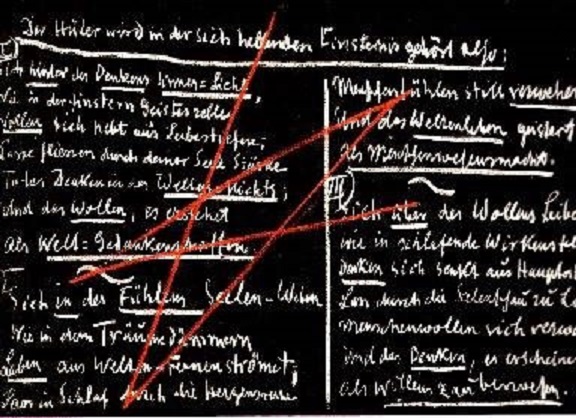 Der Hüter wird in der sich hellenden Finsternis gehört also:
I) Sieh hinter des Denkens Sinnes-Licht,
Wie in der finstern Geisteszelle
Wollen sich hebt aus Leibestiefen;
Lasse fliessen durch deiner Seele Stärke
Totes Denken in das Weltennichts;
Und das Wollen, es erstehet
Als Welt-Gedankenschaffen.
Sieh in des Fühlens Seelen-Weben
Wie in dem Träumedämmern
Leben aus Weltenfernen strömet;
Lass in Schlaf durch die Herzensruhe
Menschenfühlen still verwehen
Und das Weltenleben geistert
Als Menschenwesensmacht.
III) Sieh über des Wollens Leibe
Wie in schlafende Wirkensfel
Denken sich senkt aus Haupte
Lass durch die Seelenschau zu L
Menschenwollen sich verwa
Und das Denken, es erscheine
Als Willenszauberwesen